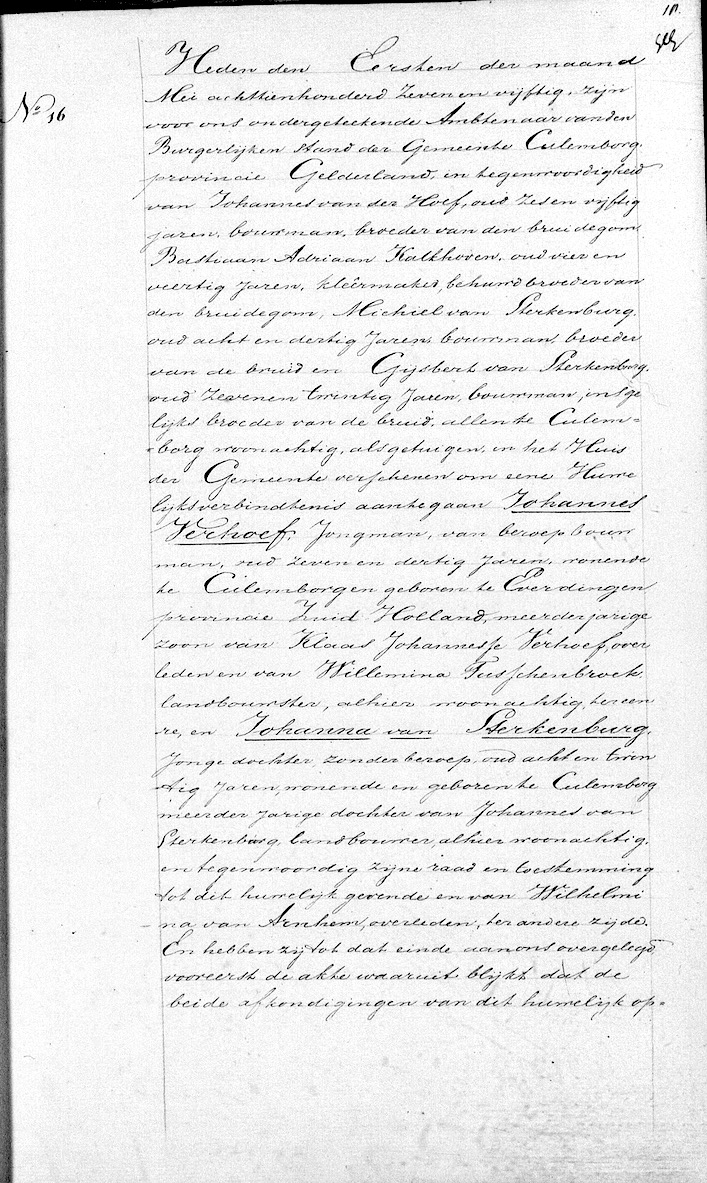 10.
No 16
Heden den Eersten der maand
Mei achttienhonderd Zeven en vijftig, zijn
voor ons ondergeteekende Ambtenaar van den
Burgerlijken stand der Gemeente Culemborg,
provincie Gelderland, in tegenwoordigheid
van Johannes van der Hoef, oud zes en vijftig
jaren, bouwman, broeder van den bruidegom
Bastiaan Adriaan Kalkhoven, oud vier en
veertig Jaren, kleêrmaker, behuwd broeder van
den bruidegom, Michiel van Sterkenburg,
oud acht en dertig Jaren, bouwman, broeder
van de bruid en Gijsbert van Sterkenburg,
oud Zeven en twintig Jaren, bouwman, insge
lijks broeder van de bruid, allen te Culem=
=borg woonachtig, als getuigen, in het Huis
der Gemeente verschenen om eene Huwe
lijksverbindtenis aantegaan Johannes
Verhoef, Jongman, van beroep bouw
man, oud zeven en dertig Jaren, wonende
te Culemborg en geboren te Everdingen
provincie Zuid Holland, meerderjarige
zoon van Klaas Johannesse Verhoef, over
leden en van Willemina Tusschenbroek,
landbouwster, alhier woonachtig, ter een
re, en Johanna van Sterkenburg,
Jonge dochter, zonder beroep, oud acht en twin
tig Jaren, wonende en geboren te Culemborg
meerder jarige dochter van Johannes van
Sterkenburg, landbouwer, alhier woonachtig,
en tegenwoordig zijne raad en toestemming
tot dit huwelijk gevende en van Wilhelmi
na van Arnhem, overleden, ter andere zijde.
En hebben zij tot dat einde aan ons overgelegd
vooreerst de akte waaruit blijkt dat de
beide afkondigingen van dit huwelijk op=